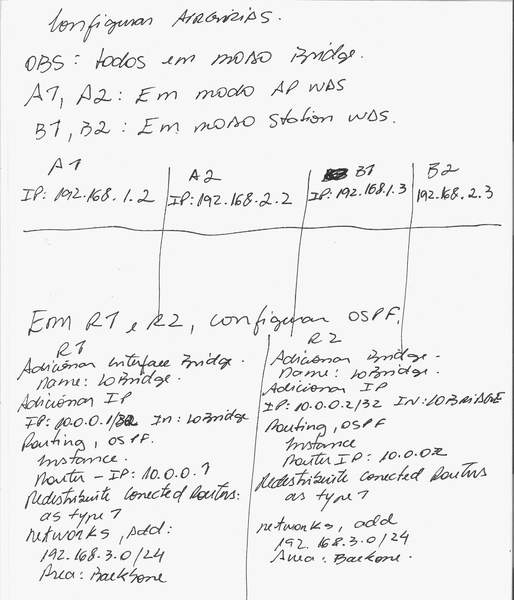 Configurar AIRGRIDS.
OBS: todos em modo Bridge.
A1, A2: Em modo AP WDS
B1, B2: Em modo Station WDS.
A1 A2 B1 B2
IP: 192.168.1.2 IP: 192.168.2.2 IP: 192.168.1.3 192.168.2.3
Em R1 e R2, configurar OSPF.
R1
Adicionar interface Bridge.
Name: LoBridge.
Adicionar IP
IP: 10.0.0.1/32 In: LoBridge
Routing, OSPF.
Instance.
Router-IP: 10.0.0.1
Redistribuite conected Routers:
as type 1
networks, add:
192.168.3.0/24
Area: Backbone
R2
Adicionar Bridge.
Name: LoBridge.
Adicionar IP
IP: 10.0.0.2/32 IN: LOBRIDGE
Routing, OSPF
Instance
Router IP: 10.0.0.2
Redistribuite conected Routers
as type 1
networks, add
192.168.3.0/24
Area: Backone.